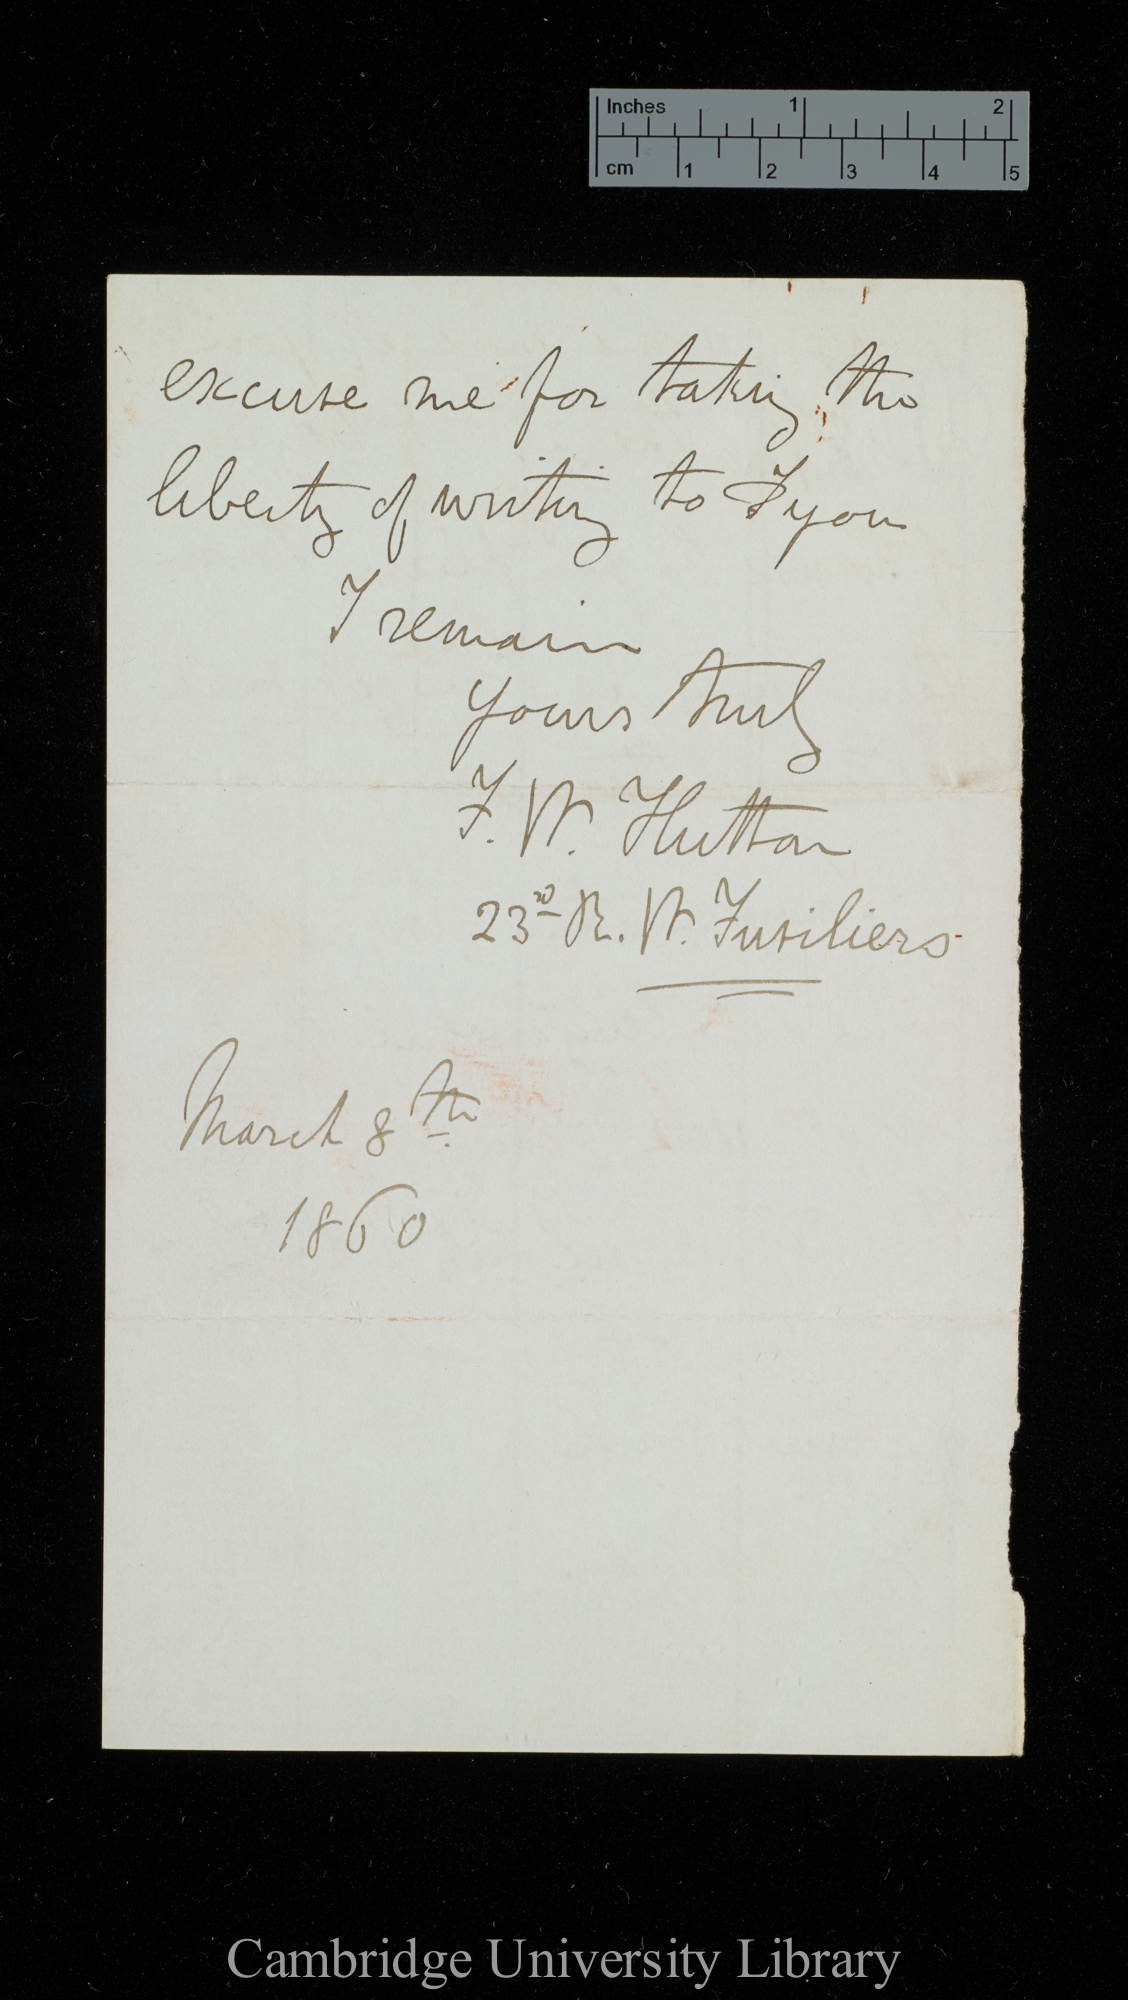 Inches 1 2
cm 1 2 3 4 5
excuse me for taking the
liberty of writing to I you
I remain
yours truly
F. W. Hutton
23rd R. W. Fusiliers
March 8th
1860
Cambridge University Library